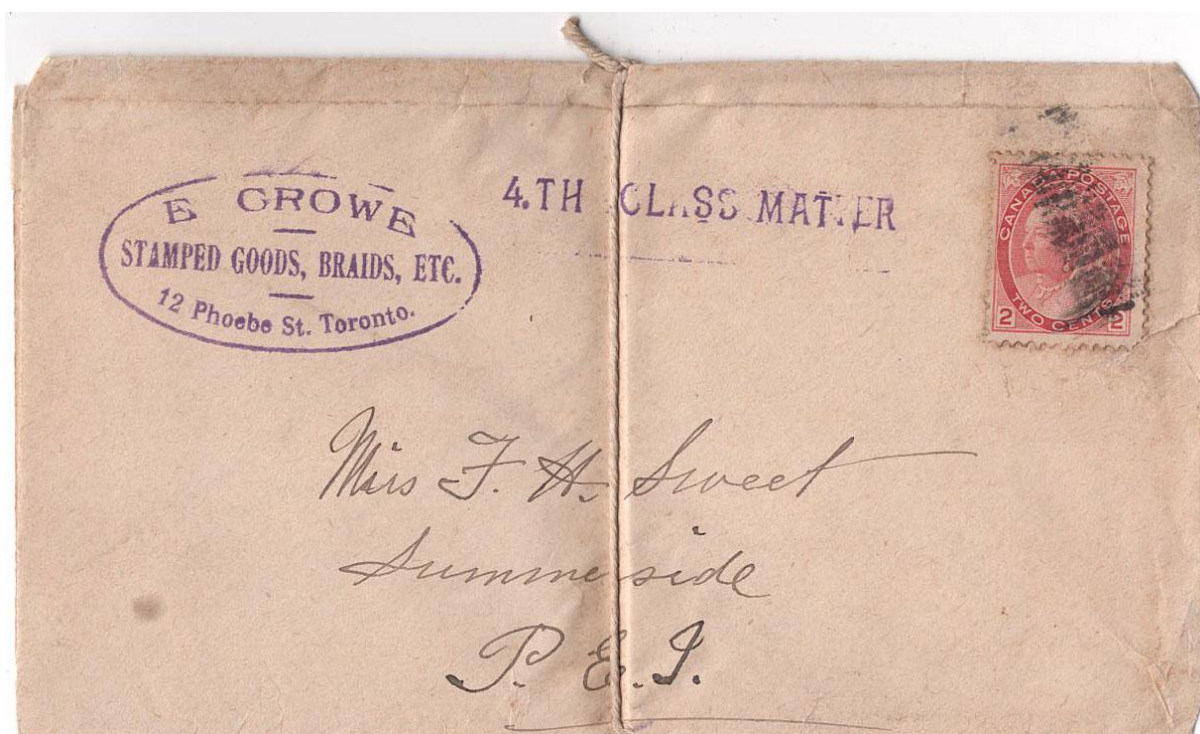 E CROWE
STAMPED GOODS, BRAIDS, ETC.
12 Phoebe St. Toronto.
4.TH CLASS MATTER
CANADA POSTAGE
TWO CENTS
2 2
Miss F. H. Sweet
Summerside
P. E. I.